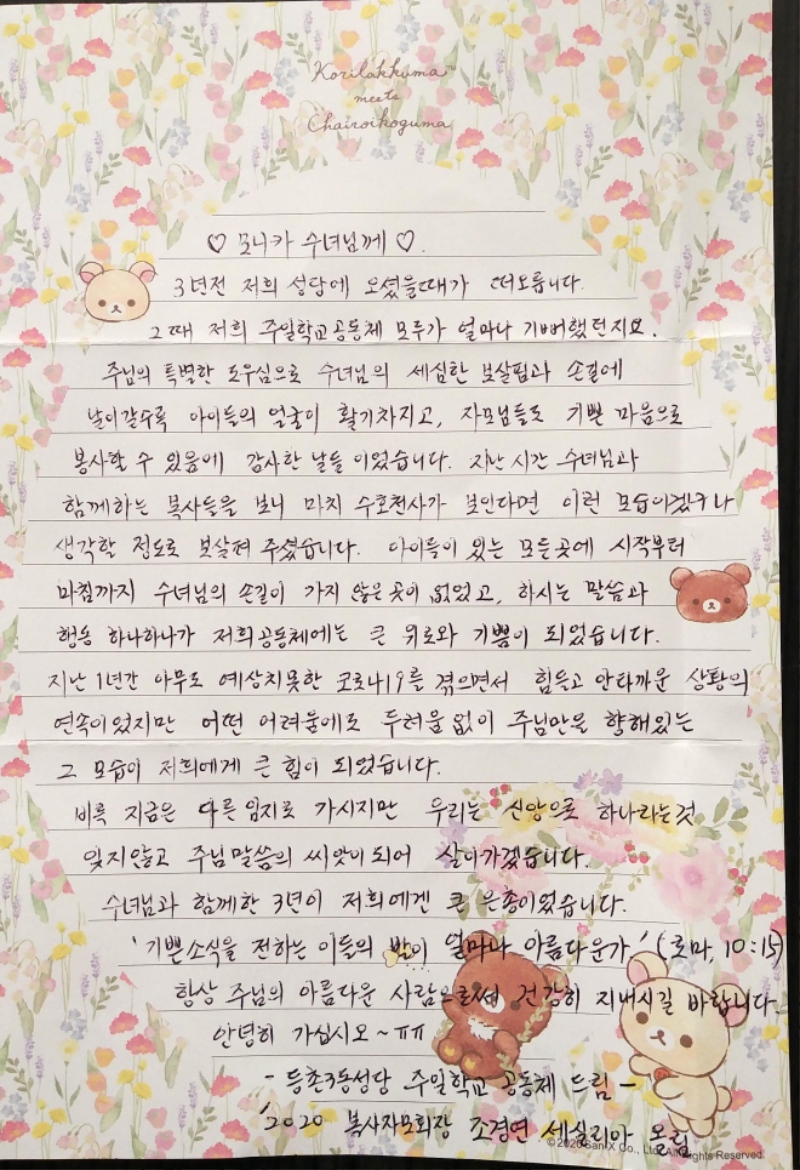 Korilakkuma™
meets
Chairoikoguma
♡ 모니카 수녀님께 ♡.
3년전 저희 성당에 오셨을때가 떠오릅니다.
그때 저희 주일학교공동체 모두가 얼마나 기뻐했던지요.
주님의 특별한 도우심으로 수녀님의 세심한 보살핌과 손길에
날이갈수록 아이들의 얼굴이 활기차지고, 자모님들도 기쁜 마음으로
봉사할 수 있음에 감사한 날들 이었습니다. 지난 시간 수녀님과
함께하는 복사들을 보니 마치 수호천사가 보인다면 이런 모습이겠구나
생각할 정도로 보살펴 주셨습니다. 아이들이 있는 모든곳에 시작부터
마침까지 수녀님의 손길이 가지 않은 곳이 없었고, 하시는 말씀과
행동 하나하나가 저희공동체에는 큰 위로와 기쁨이 되었습니다.
지난 1년간 아무도 예상치못한 코로나19를 겪으면서 힘들고 안타까운 상황의
연속이었지만 어떤 어려움에도 두려움없이 주님만을 향해있는
그 모습이 저희에게 큰 힘이 되었습니다.
비록 지금은 다른 임지로 가시지만 우리는 신앙으로 하나라는것
잊지않고 주님말씀의 씨앗이되어 살아가겠습니다.
수녀님과 함께한 3년이 저희에겐 큰 은총이었습니다.
'기쁜소식을 전하는 이들의 발이 얼마나 아름다운가' (로마, 10:15)
항상 주님의 아름다운 사람으로써 건강히 지내시길 바랍니다.
안녕히 가십시오~ ㅠㅠ
- 등촌3동성당 주일학교 공동체 드림 -
'2020 복사자모회장 조경연 세실리아 올림
©2020 San-X Co., Ltd. All Rights Reserved.